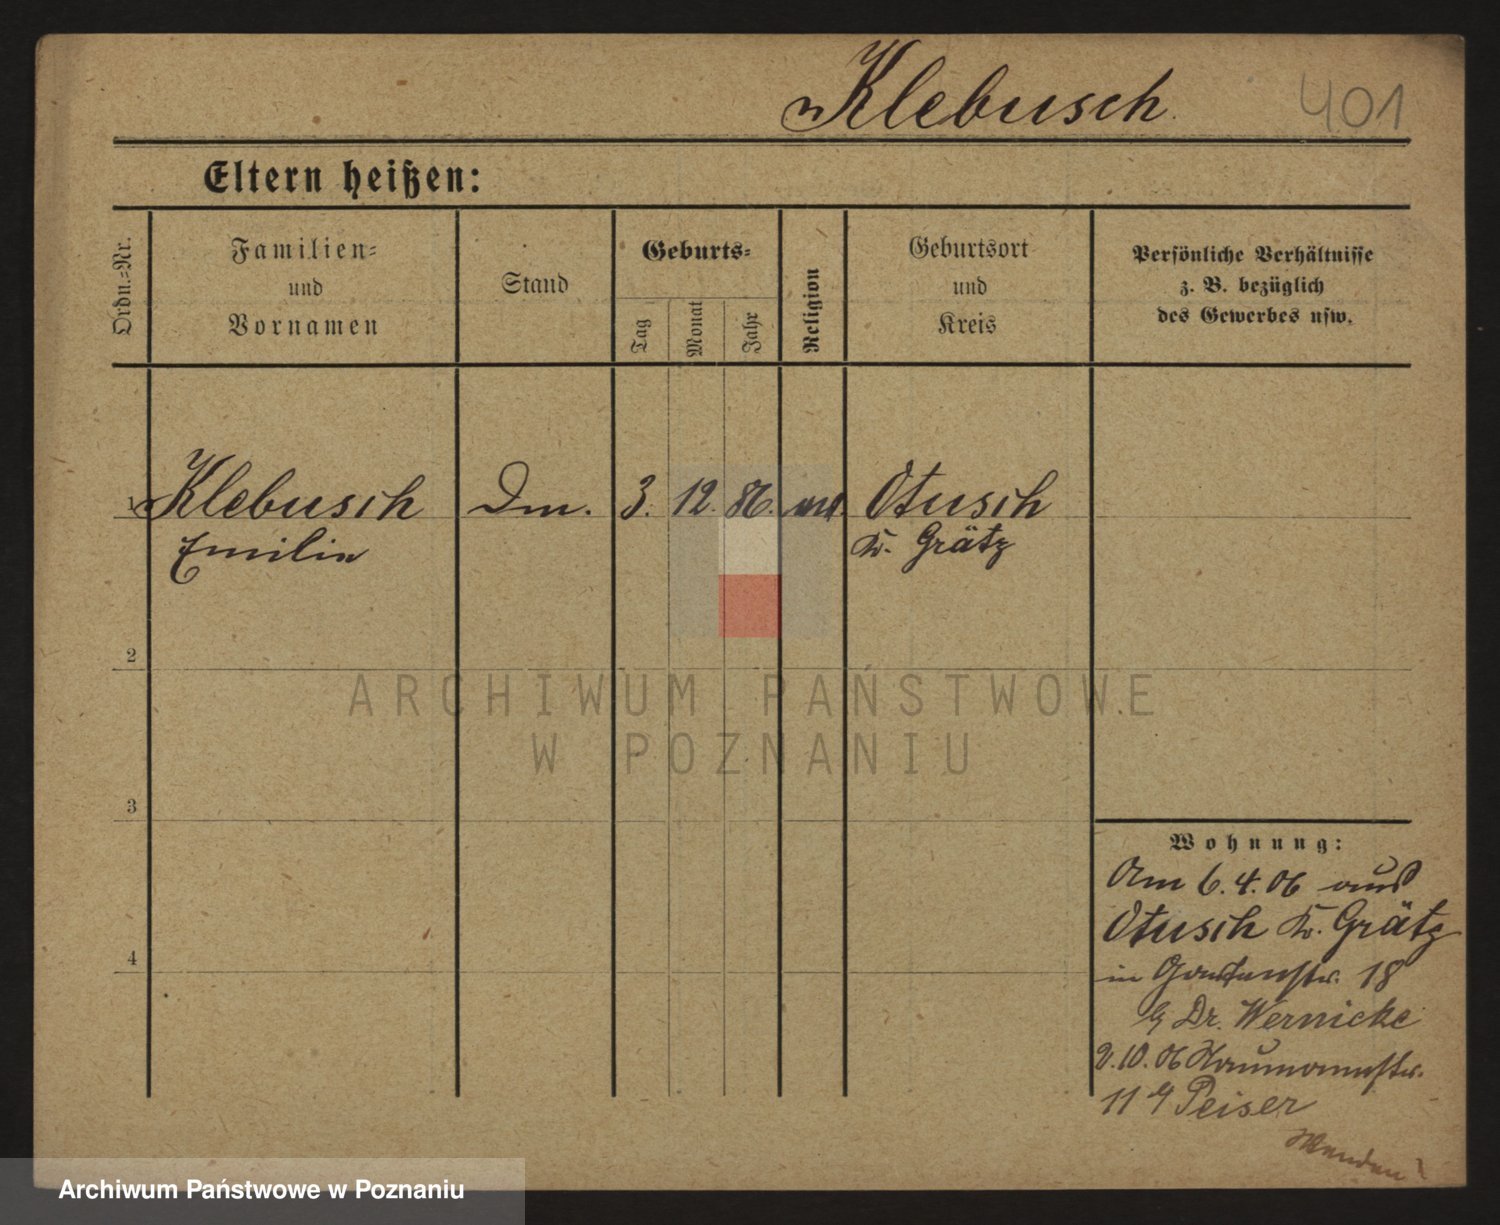 Klebusch 401
Eltern heißen:
Ordn.=Nr.
Familien=
und
Vornamen
Stand
Geburts=
Tag
Monat
Jahr
Religion
Geburtsort
und
Kreis
Persönliche Verhältnisse
z. B. bezüglich
des Gewerbes usw.
1 Klebusch Dm. 3. 12. 86. Otusch
Emilie Kr. Grätz
2
3
4
Wohnung:
Am 6.4.06 aus
Otusch Kr. Grätz
in Gartenstr. 18
Dr. Wernicke
2.10.06 Naumannstr.
11 Peiser
Wenden!
ARCHIWUM PAŃSTWOWE
W POZNANIU
Archiwum Państwowe w Poznaniu